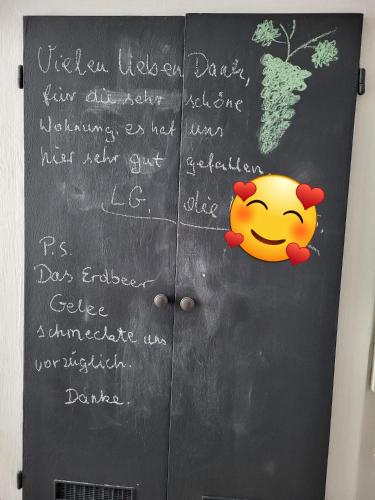 Vielen lieben Dank,
für die sehr schöne
Wohnung, es hat uns
hier sehr gut gefallen
LG, die
P.S.
Das Erdbeer
Gelee
schmeckte uns
vorzüglich.
Danke.